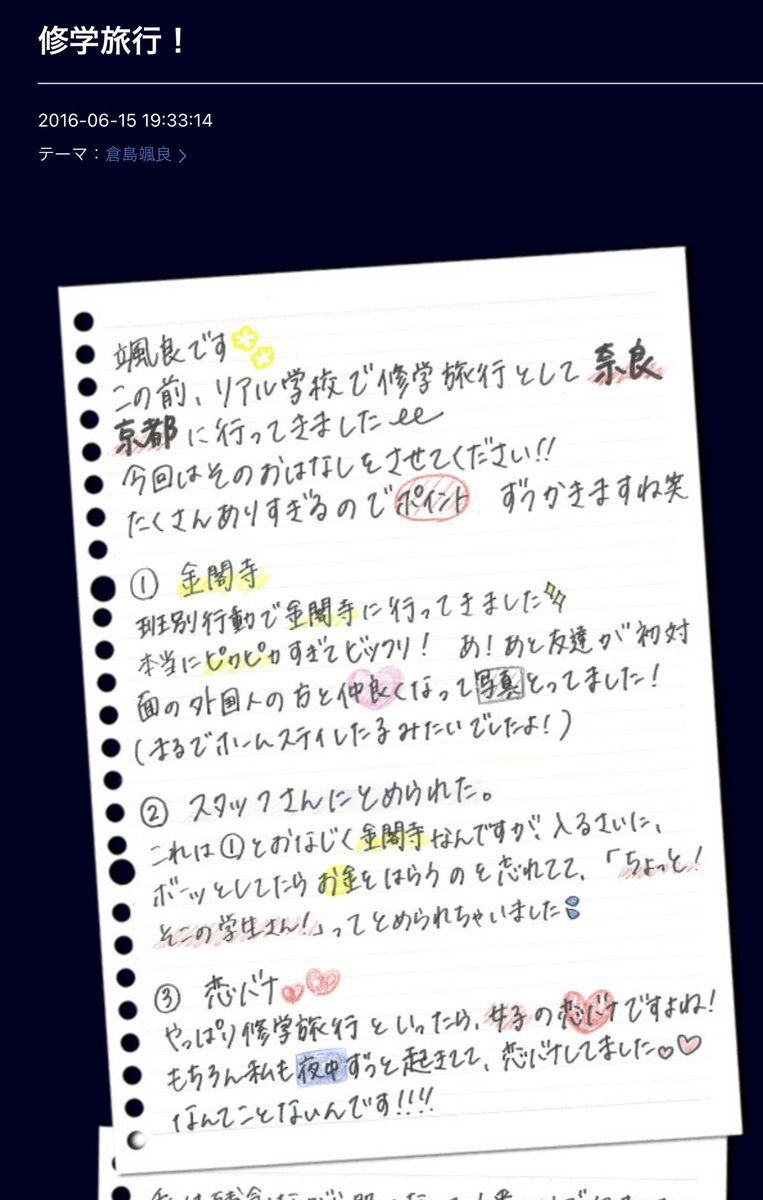 修学旅行！
2016-06-15 19:33:14
テーマ：倉島颯良
颯良です
この前、リアル学校で修学旅行として奈良
京都に行ってきました
今回はそのおはなしをさせてください!!
たくさんありすぎるのでポイント ずつかきますね笑
① 金閣寺
班別行動で金閣寺に行ってきました
本当にピカピカすぎてビックリ！ あ！あと友達が初対
面の外国人の方と仲良くなって写真とってました！
(まるでホームスティしたるみたいでしたよ！)
② スタッフさんにとめられた。
これは①とおなじく金閣寺なんですが、入るさいに、
ボーッとしてたらお金をはらうのを忘れてて、「ちょっと！
そこの学生さん！」ってとめられちゃいました
③ 恋バナ
やっぱり修学旅行といったら、女子の恋バナですよね！
もちろん私も夜中ずっと起きてて、恋バナしてました
なんてことないんです!!!!